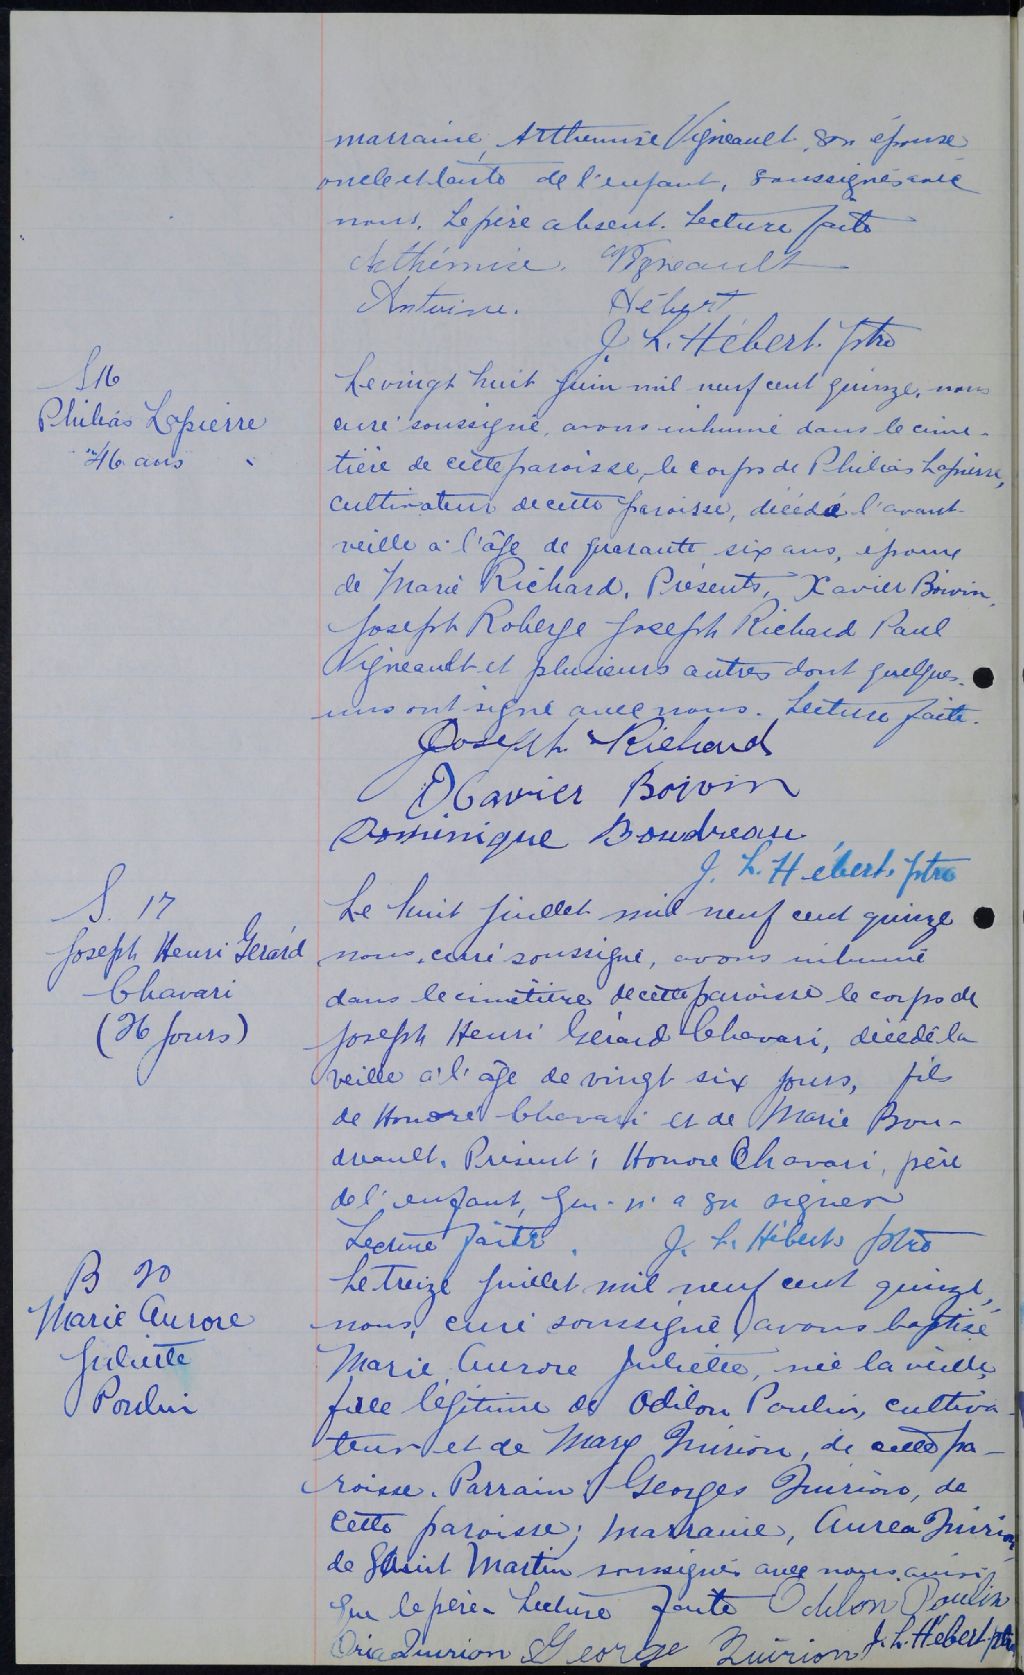 marraine, Arthemise Vigneault, son épouse
oncle et tante de l'enfant, soussignés avec
nous. Le père absent. Lecture faite
Arthémise. Vigneault
Antoine. Hébert
J. L. Hébert. ptre
S 16
Philias Lapierre
46 ans
Le vingt huit juin mil neuf cent quinze, nous
curé soussigné, avons inhumé dans le cime-
tière de cette paroisse, le corps de Philias Lapierre,
cultivateur de cette paroisse, décédé l'avant
veille à l'âge de quarante six ans, époux
de Marie Richard. Présents, Xavier Boivin,
Joseph Roberge Joseph Richard Paul
Vigneault et plusieurs autres dont quelques-
uns ont signé avec nous. Lecture faite.
Joseph Richard
Xavier Boivin
Dominique Boudreau
J. L. Hébert. ptre
S. 17
Joseph Henri Gerard
Chavari
(26 jours)
Le huit juillet mil neuf cent quinze
nous, curé soussigné, avons inhumé
dans le cimetière de cette paroisse le corps de
Joseph Henri Gérard Chavari, décédé la
veille à l'âge de vingt six jours, fils
de Honoré Chavari et de Marie Bou-
dreault. Présent: Honoré Chavari, père
de l'enfant, qui n'a su signer
Lecture faite. J. L. Hébert ptre
B 20
Marie Aurore
Juliette
Poulin
Le treize juillet mil neuf cent quinze,
nous, curé soussigné, avons baptisé
Marie Aurore Juliette, née la veille,
fille légitime de Odilon Poulin, cultiva-
teur et de Mary Quirion, de cette pa-
roisse. Parrain: Georges Quirion, de
cette paroisse; marraine, Aurea Quirion
de Saint Martin soussignés avec nous ainsi
que le père. Lecture faite Odilon Poulin
Quirion George Quirion J. L. Hébert ptre